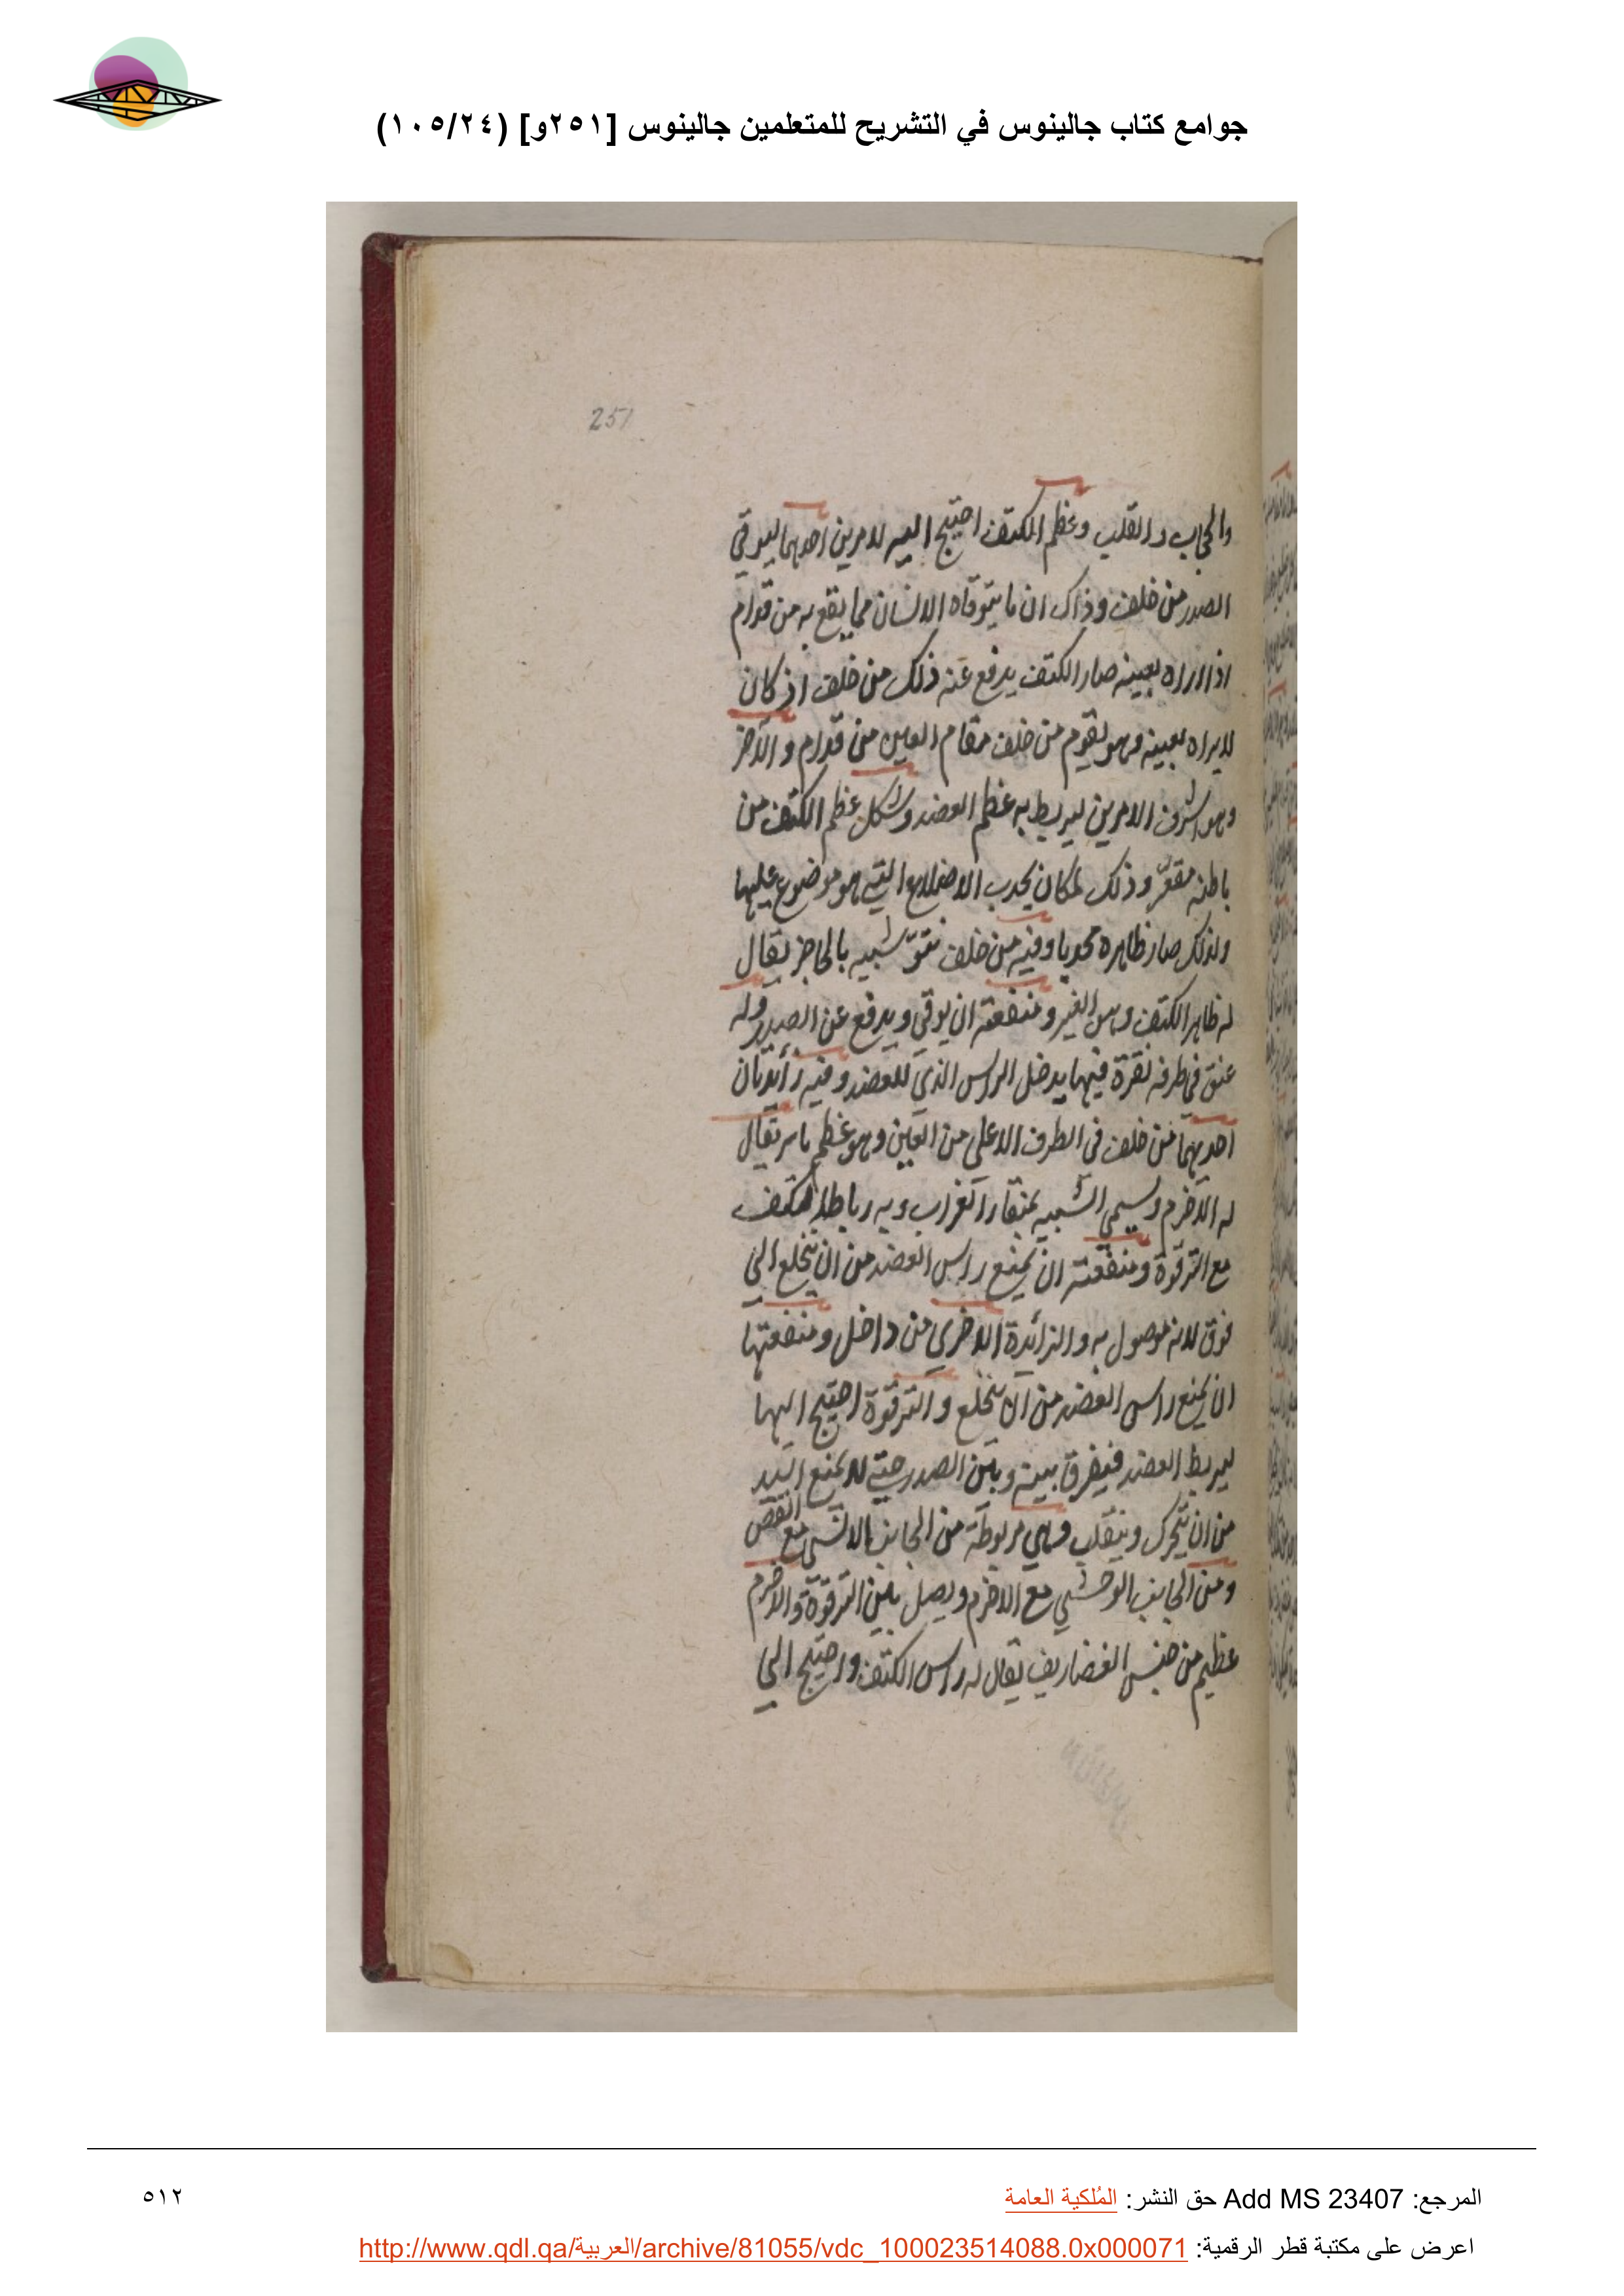 جوامع كتاب جالينوس في التشريح للمتعلمين جالينوس [٢٥١و] (١٠٥/٢٤)
251
والحجاب والقلب وعظم الكتف احتيج اليه لامرين احدهما ليوقي
الصدر من خلف وذاك ان ما يتوقاه الانسان مما يقع به من قدام
اذا راه بعينه صار الكتف يدفع عنه ذلك من خلف اذ كان
لا يراه بعينه وهو يقوم من خلف مقام العين من قدام والآخر
وهو اشرف الامرين ليربط به عظم العضد وشكل عظم الكتف من
باطنه مقعر وذلك لمكان تحدب الاضلاع التي هو موضوع عليها
ولذلك صار ظاهره محدبا وفيه من خلف نتو شبيه بالحاجز يقال
له ظاهر الكتف وهو العير ومنفعته ان يوقي ويدفع عن الصدر وله
عنق في طرفه نقرة فيها يدخل الراس الذي للعضد وفيه زائدتان
احديهما من خلف في الطرف الاعلى من العين وهو عظم ما يقال
له الاخرم ويسمى الشبيه بمنقار الغراب وبه رباط الكتف
مع الترقوة ومنفعته ان يمنع راس العضد من ان ينخلع الى
فوق لانه موصول به والزائدة الاخرى من داخل ومنفعتها
ان يمنع راس العضد من ان ينخلع والترقوة احتيج اليها
ليربط العضد فيفرق بينه وبين الصدر حتى لا يمنع اليد
من ان يتحرك وينقلب وهي مربوطة من الجانب الانسي مع القص
ومن الجانب الوحشي مع الاخرم ويصل بين الترقوة والاخرم
عظيم من جنس الغضاريف يقال له راس الكتف واحتيج الى
المرجع: Add MS 23407 حق النشر: المُلكية العامة
٥١٢
اعرض على مكتبة قطر الرقمية: http://www.qdl.qa/العربية/archive/81055/vdc_100023514088.0x000071